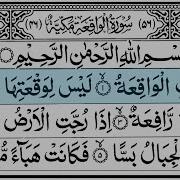 (٥٦) سُورَةُ الْوَاقِعَةِ مَكِّيَّةٌ (٤٦)
بِسْمِ اللَّهِ الرَّحْمَٰنِ الرَّحِيمِ
الْوَاقِعَةُ ۝١ لَيْسَ لِوَقْعَتِهَا
رَافِعَةٌ ۝٣ إِذَا رُجَّتِ الْأَرْضُ
الْجِبَالُ بَسًّا ۝٥ فَكَانَتْ هَبَاءً